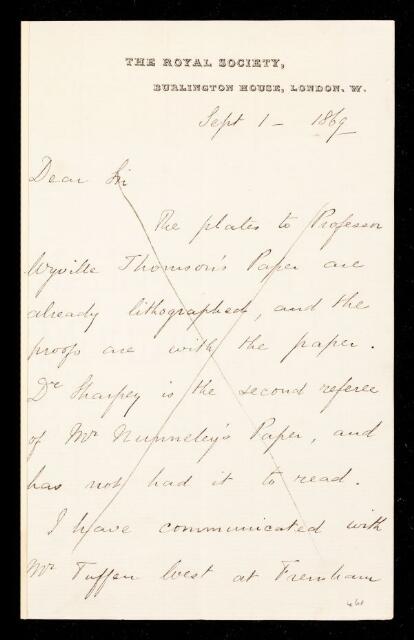 THE ROYAL SOCIETY,
BURLINGTON HOUSE, LONDON. W.
Sept 1 - 1869
Dear Sir
The plates to Professor
Wyville Thomson's Paper are
already lithographed, and the
proofs are with the paper.
Dr Sharpey is the second referee
of Mr Nunneley's Paper, and
has not had it to read.
I have communicated with
Mr Tuffen West at Frensham